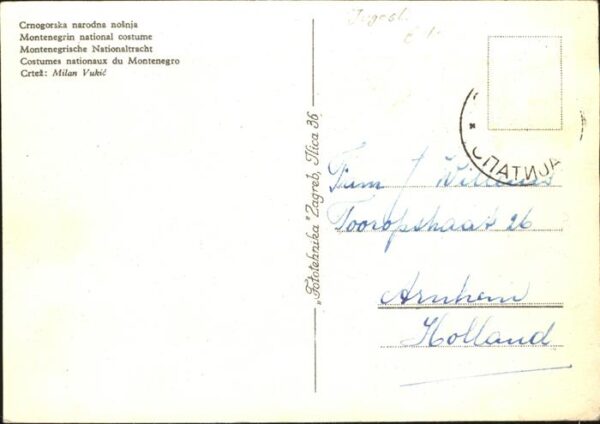 Crnogorska narodna nošnja
Montenegrin national costume
Montenegrische Nationaltracht
Costumes nationaux du Montenegro
Crtež: Milan Vukić
Jugosl.
„Fototehnika" Zagreb, Ilica 36
ОПАТИЈА
Fam
Tooropstraat 26
Arnhem
Holland